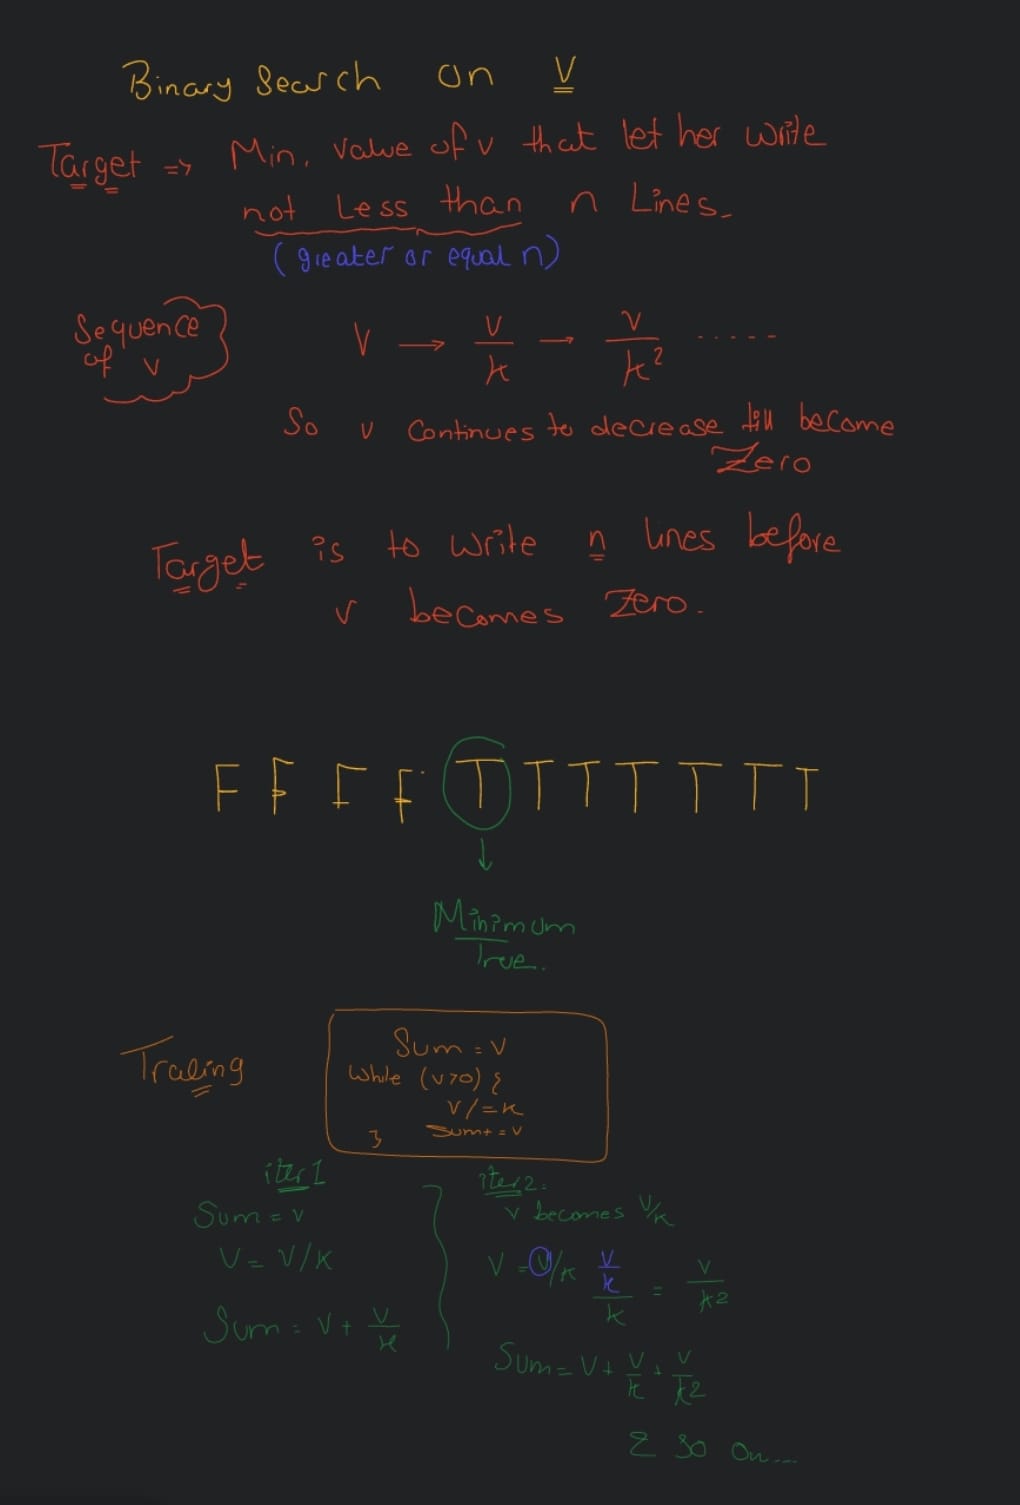 Binary Search on V
Target => Min. value of v that let her write
not Less than n Lines.
(greater or equal n)
Sequence
of v
V → v/k → v/k² .....
So v Continues to decrease till become
Zero
Target is to write n lines before
v becomes Zero.
F F F F T T T T T T T
Minimum
True.
Tracing
Sum = v
While (v>0) {
v/=k
Sum+=v
}
iter 1
Sum = v
V = V/K
Sum = V + V/k
iter 2:
v becomes V/K
V = V/k v/k/k = v/k2
Sum = V + V/k + V/k2
& So On...